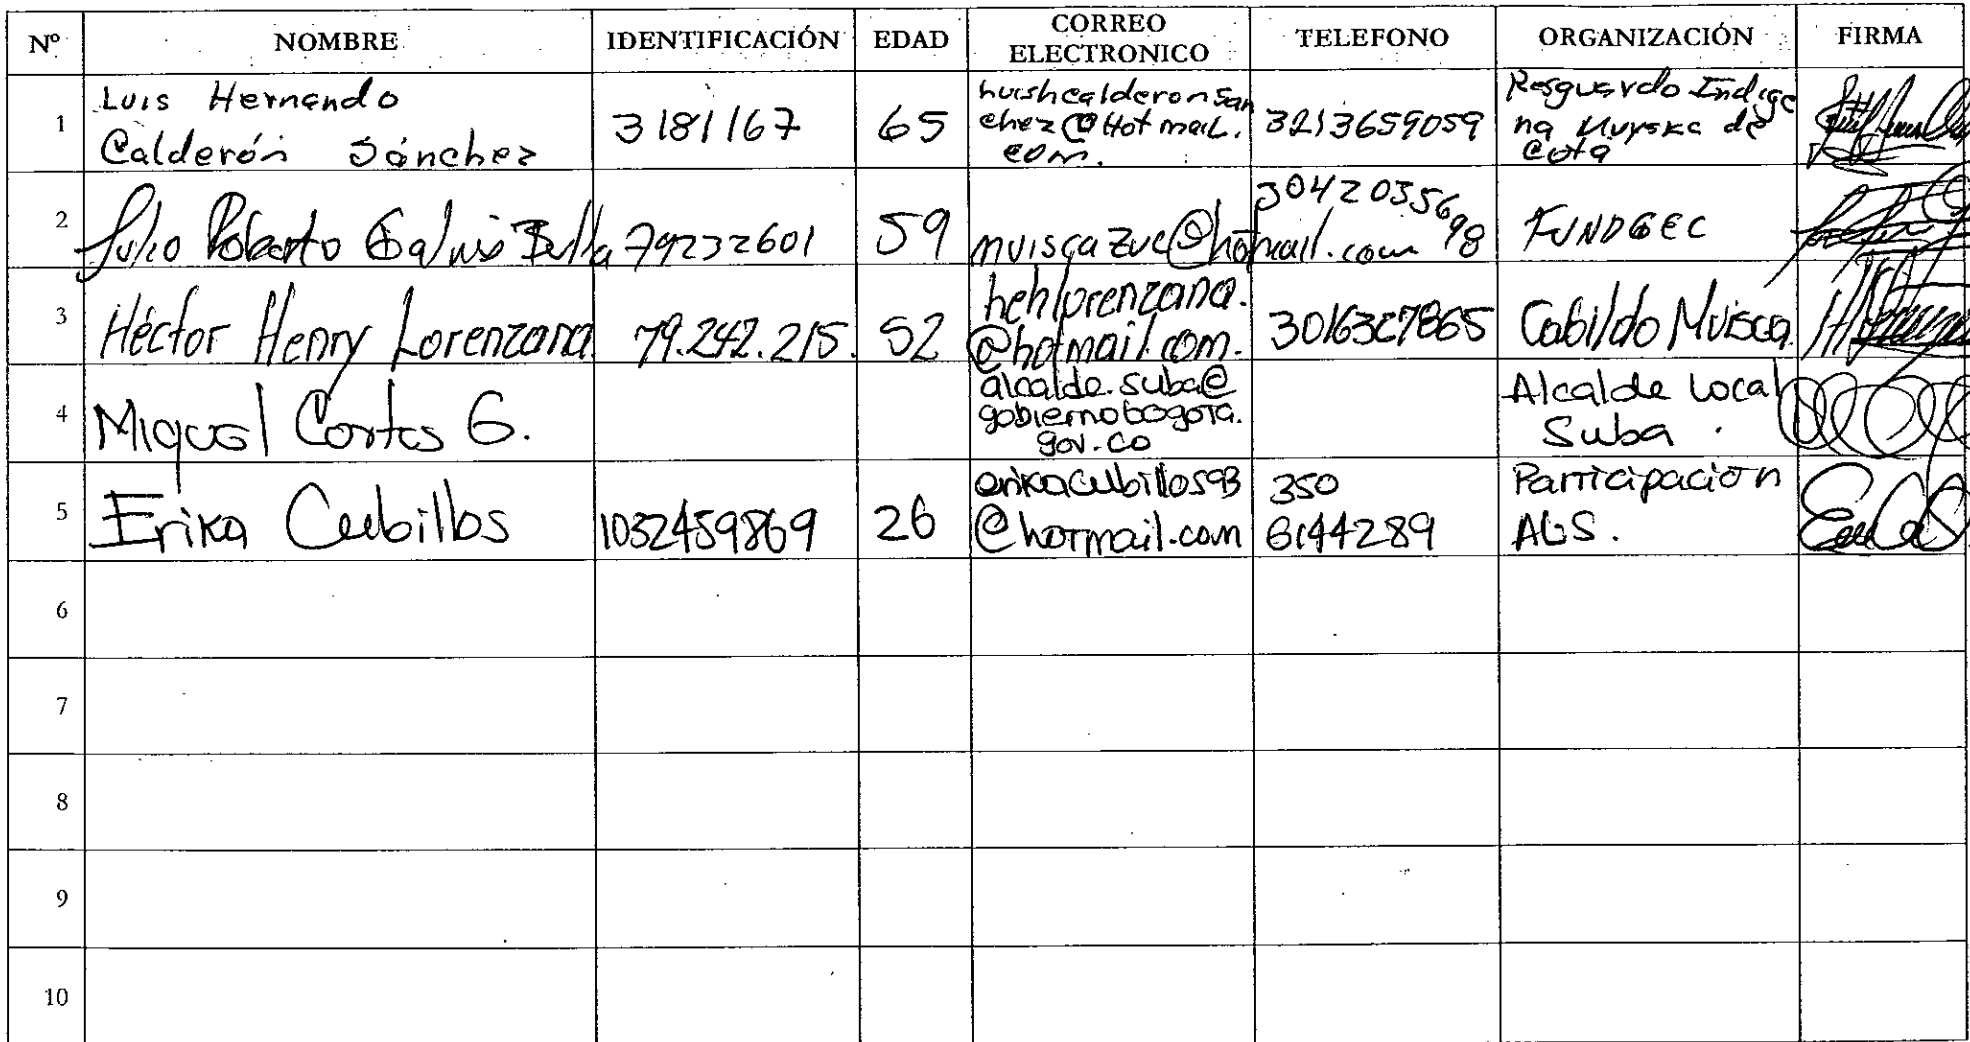 Nº NOMBRE IDENTIFICACIÓN EDAD CORREO ELECTRONICO TELEFONO ORGANIZACIÓN FIRMA
1
Luis Hernando
Calderón Sánchez
3181167
65
chez@Hotmail.
com.
3213659059
Resguardo Indige
na Muyska de
Cota
2
Julio Roberto Galvis Bulla
79232601
59
muiscazuc@hotmail.com
FUNDGEC
3
Héctor Henry Lorenzana
79.242.215.
52
hehlorenzana.
@hotmail.com.
3016327865
Cabildo Muisca
4
Miguel Cortes G.
alcalde.suba@
gobiernobogota.
gov.co
Alcalde Local
Suba.
5
Erika Cubillos
1032459869
26
erikacubillos93
@hotmail.com
350
6144289
Participación
ALS.
6
7
8
9
10